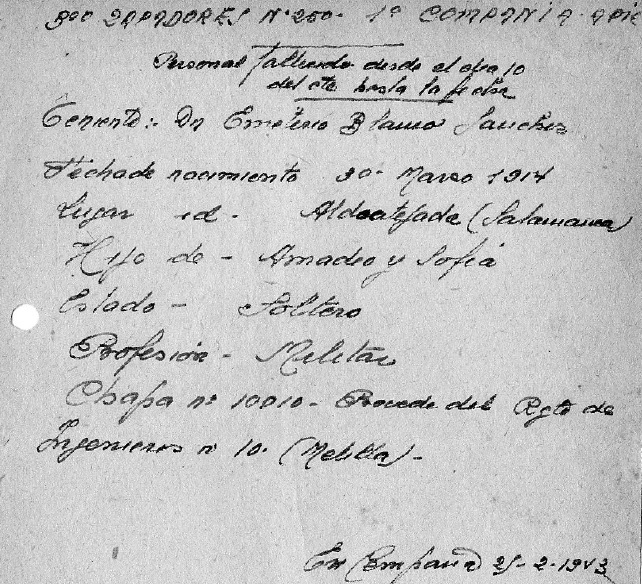 ZAPADORES Nº 250 - 1ª COMPAÑIA
Personal fallecido desde el dia 10
del cte hasta la fecha
Teniente:- Dn Emeterio Blanco Sanchez
Fecha de nacimiento 30- Marzo 1914
Lugar id - Aldeatejada (Salamanca)
Hijo de - Amadeo y Sofia
Estado - Soltero
Profesión - Militar
Chapa nº 10010 - Procede del Rgto de
Ingenieros nº 10. (Melilla) -
En Campaña 25-2-1943